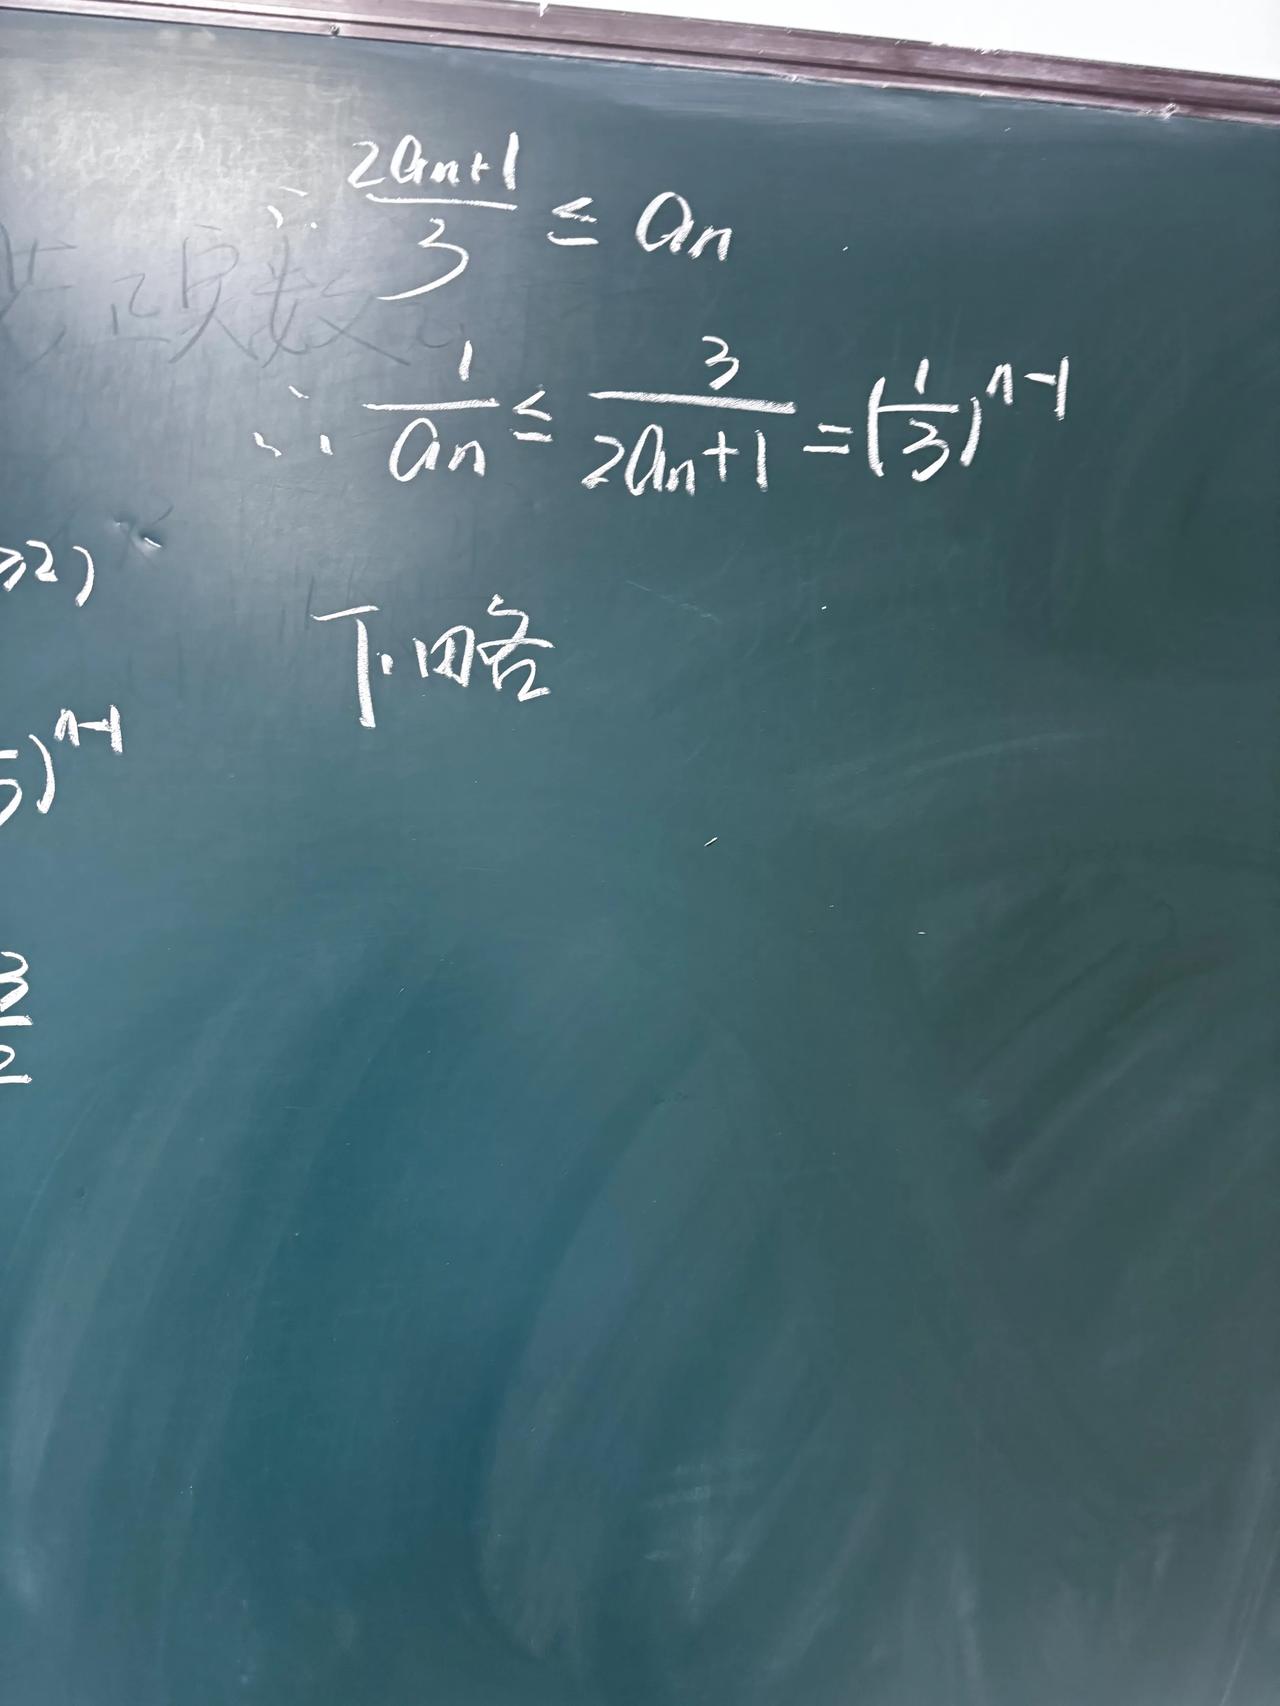 ∴ \frac{2a_n+1}{3} ≤ a_n
∴ \frac{1}{a_n} ≤ \frac{3}{2a_n+1} = (\frac{1}{3})^{n-1}
≥2)
下略
)^{n-1}
3
2